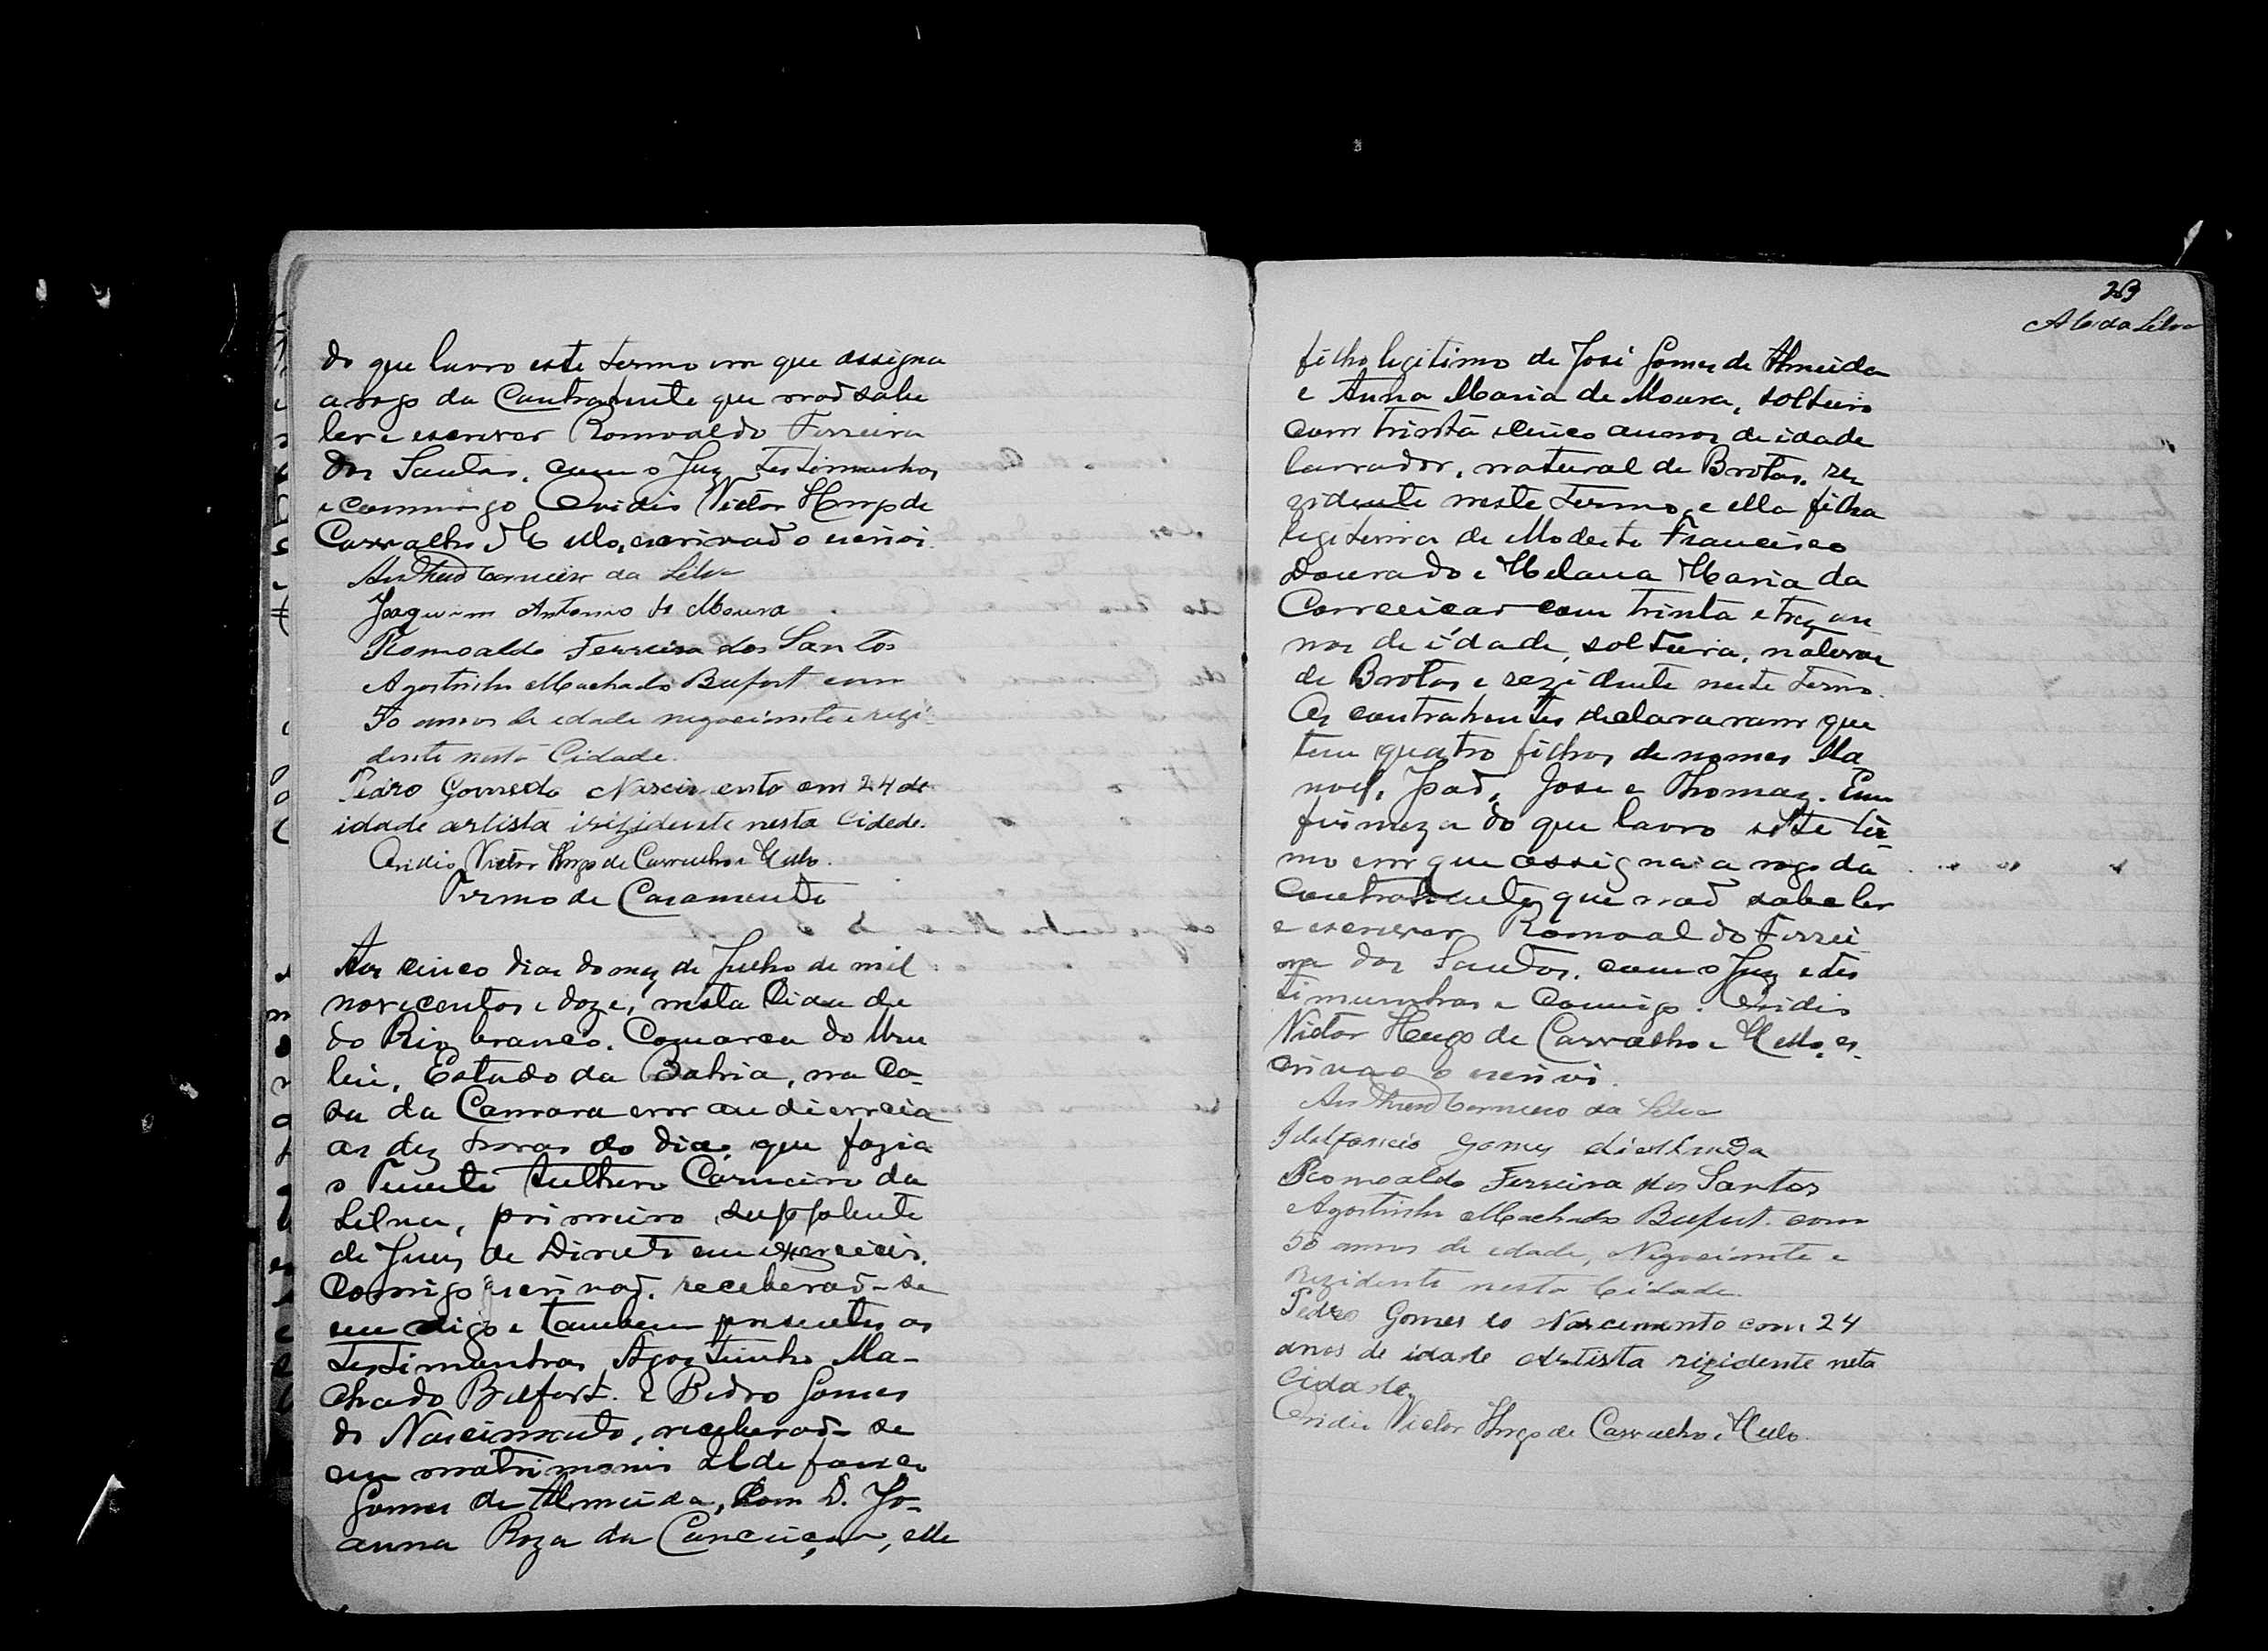 do que lavro este termo em que assigna
a rogo da Contrahente que não sabe
ler e escrever Romoaldo Ferreira
dos Santos, com o Juz testimunhas
e commigo Ovidio Victor Hugo de
Carvalho e Mello, escrivão o escrivi.
Carneiro da Silva
Joaquim Antonio de Moura
Romoaldo Ferreira dos Santos
Agostinho Machado Bufort com
50 annos de edade negociante e rezi-
dente nesta Cidade.
Pedro Gomes do Nascimento com 24 de
idade artista irizidente nesta Cidede.
Ovidio Victor Hugo de Carvalho e Mello.
Termo de Casamento
Aos cinco dias do mez de Julho de mil
novecentos e doze, nesta Cidade
do Rio branco, Comarca do Uru
bú, Estado da Bahia, na Ca-
sa da Camara em audiencia
as dez horas do dia, que fazia
o Tenente Anthero Carneiro da
Silva, primeiro supplente
de Juiz de Direito em exercicio,
Comigo escrivão, receberão-se
em digo e tambem presentes as
testimunhas Agostinho Ma-
chado Belfort. e Pedro Gomes
do Nascimento, receberão-se
em matrimonio Ildefonço
Gomes de Almeida, Com D. Jo-
anna Roza da Conceição, elle
269
C da Silva
filho legitimo de José Gomes de Almeida
e Anna Maria de Moura, solteiro
com trinta e cinco annos de idade
lavrador, natural de Brotas, re
zidente neste termo, e ella filha
legitima de Modesto Francisco
Dourado e Helana Maria da
Conceição com trinta e trez an
nos de idade, solteira, natural
de Brotas e rezidente neste termo.
Os contrahentes declararam que
tem quatro filhos de nomes Ma
noel, João, Jose e Thomaz. Em
firmeza do que lavro este ter-
mo em que assigna a rogo da
Contrahente que não sabe ler
e escrever Romoaldo Ferrei
ra dos Santos, com o Juz e tes
timunhas e Comigo. Ovidio
Victor Hugo de Carvalho e Mello, es-
crivão o escrivi.
Carneiro da Silva
Ildefoncio Gomes dialmeida
Romoaldo Ferreira dos Santos
Agostinho Machado Bufort. com
50 annos de edade, Negociante e
Rezidente nesta Cidade.
Pedro Gomes do Nascimento com 24
anos de idade Artista rizidente neta
Cidade.
Ovidio Victor Hugo de Carvalho e Mello.